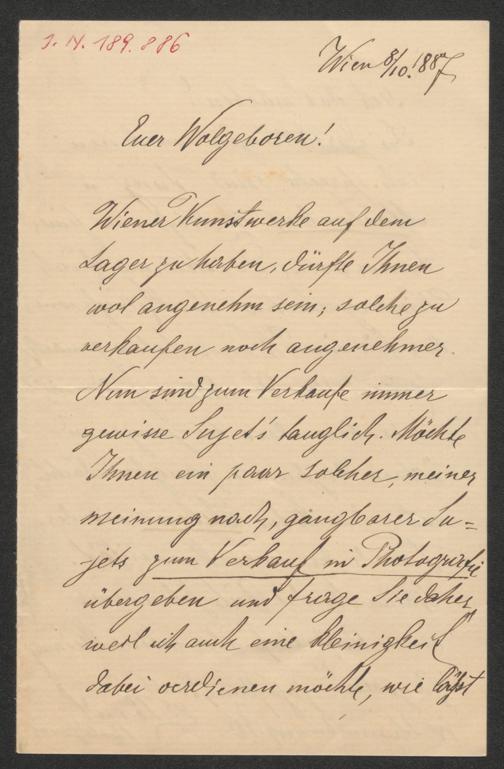 J. N. 189.886
Wien 8/10. 1887
Euer Wolgeboren!
Wiener Kunstwerke auf dem
Lager zu haben, dürfte Ihnen
wol angenehm sein; solche zu
verkaufen noch angenehmer.
Nun sind zum Verkaufe immer
gewisse Sujet's tauglich. Möchte
Ihnen ein paar solcher, meiner
meinung nach, gangbarer Su=
jets zum Verkauf in Photografie
übergeben und frage Sie daher
weil ich auch eine kleinigkeit
dabei verdienen möchte, wie läßt